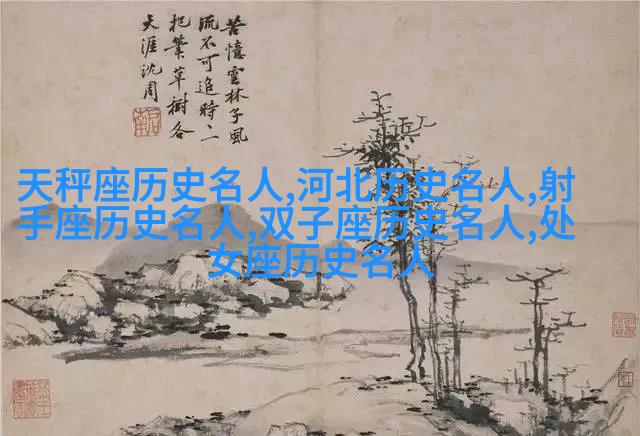 苦憶雲林子風
流不可追時二
把筆草樹各
天涯沈周
天秤座历史名人,河北历史名人,射
手座历史名人,双子座历史名人,处
女座历史名人